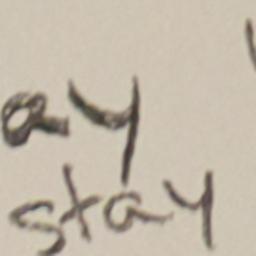 ay
stay